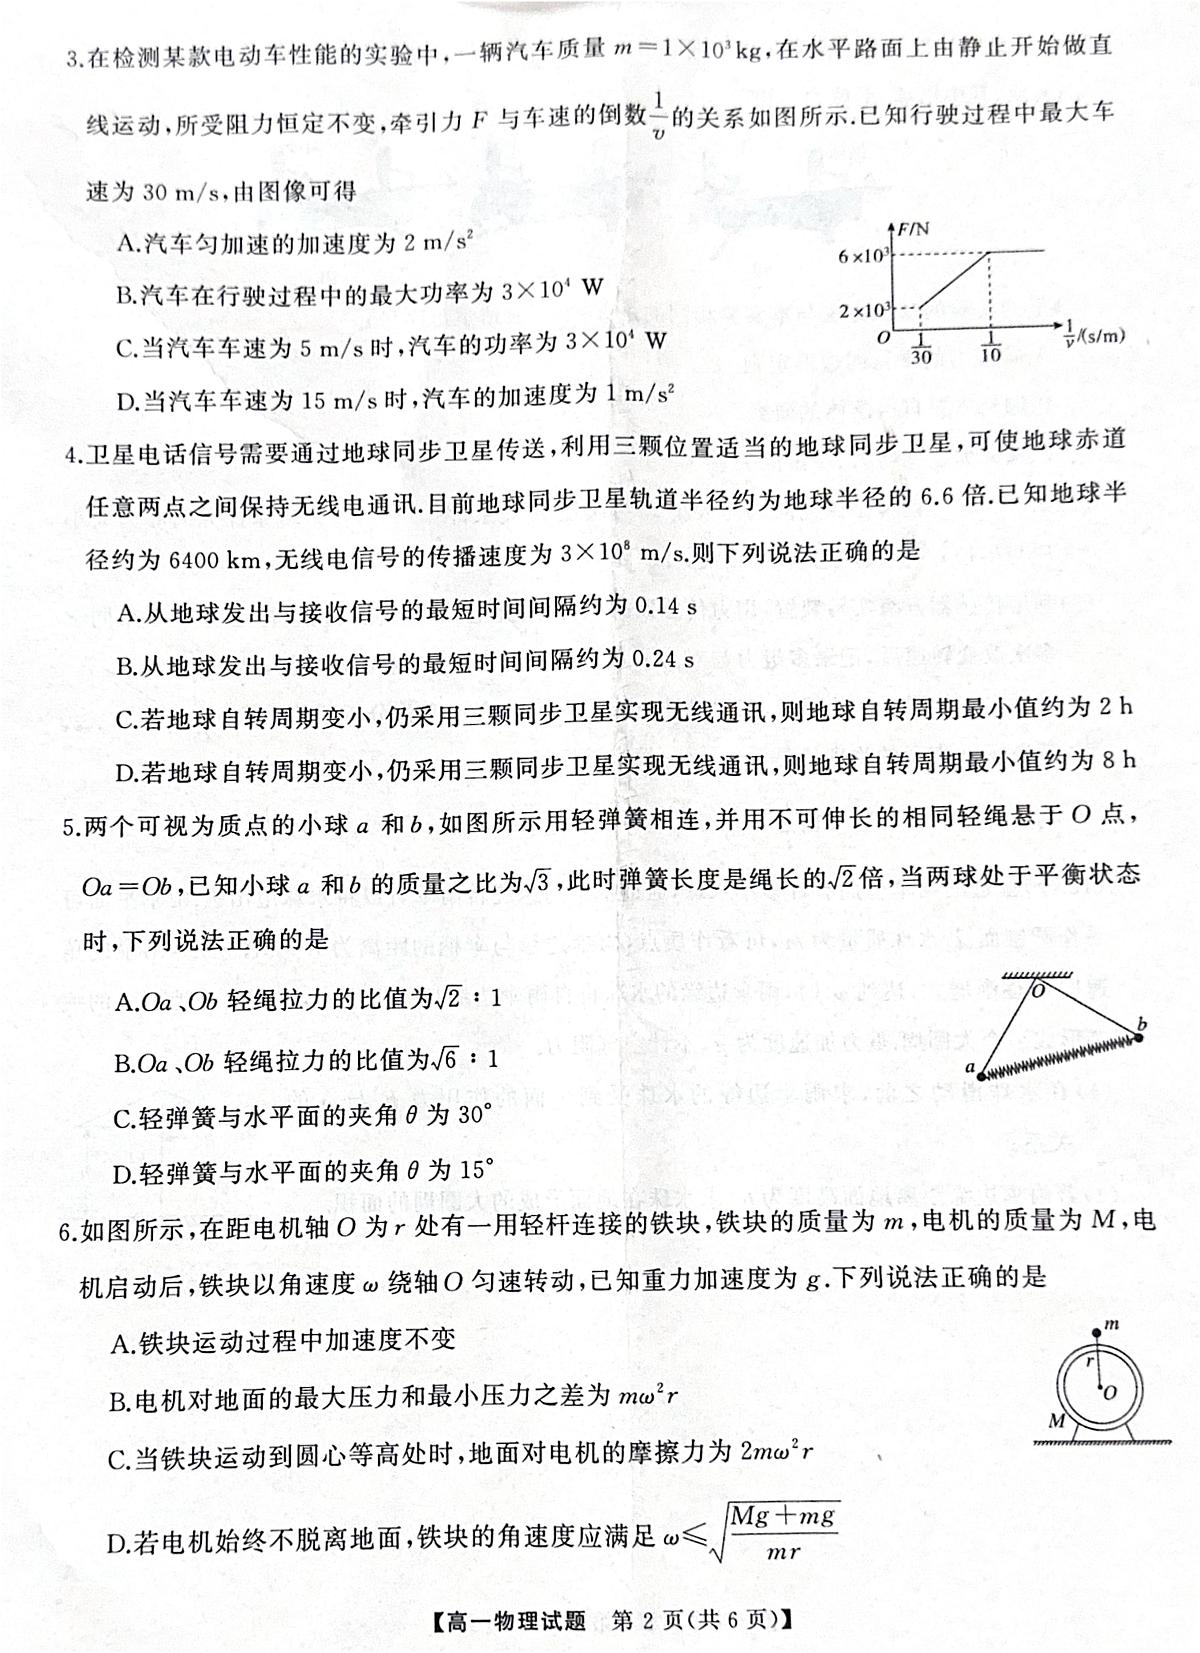 3.在检测某款电动车性能的实验中,一辆汽车质量 m=1×10³kg,在水平路面上由静止开始做直
线运动,所受阻力恒定不变,牵引力 F 与车速的倒数1/v的关系如图所示.已知行驶过程中最大车
速为 30 m/s,由图像可得
A.汽车匀加速的加速度为 2 m/s²
B.汽车在行驶过程中的最大功率为 3×10⁴ W
C.当汽车车速为 5 m/s 时,汽车的功率为 3×10⁴ W
D.当汽车车速为 15 m/s 时,汽车的加速度为 1 m/s²
F/N
6×10³
2×10³
O
1/30
1/10
1/v/(s/m)
4.卫星电话信号需要通过地球同步卫星传送,利用三颗位置适当的地球同步卫星,可使地球赤道
任意两点之间保持无线电通讯.目前地球同步卫星轨道半径约为地球半径的 6.6 倍.已知地球半
径约为 6400 km,无线电信号的传播速度为 3×10⁸ m/s.则下列说法正确的是
A.从地球发出与接收信号的最短时间间隔约为 0.14 s
B.从地球发出与接收信号的最短时间间隔约为 0.24 s
C.若地球自转周期变小,仍采用三颗同步卫星实现无线通讯,则地球自转周期最小值约为 2 h
D.若地球自转周期变小,仍采用三颗同步卫星实现无线通讯,则地球自转周期最小值约为 8 h
5.两个可视为质点的小球 a 和 b,如图所示用轻弹簧相连,并用不可伸长的相同轻绳悬于 O 点,
Oa=Ob,已知小球 a 和 b 的质量之比为√3,此时弹簧长度是绳长的√2倍,当两球处于平衡状态
时,下列说法正确的是
A.Oa、Ob 轻绳拉力的比值为√2:1
B.Oa、Ob 轻绳拉力的比值为√6:1
C.轻弹簧与水平面的夹角 θ 为 30°
D.轻弹簧与水平面的夹角 θ 为 15°
O
b
a
6.如图所示,在距电机轴 O 为 r 处有一用轻杆连接的铁块,铁块的质量为 m,电机的质量为 M,电
机启动后,铁块以角速度 ω 绕轴 O 匀速转动,已知重力加速度为 g.下列说法正确的是
A.铁块运动过程中加速度不变
B.电机对地面的最大压力和最小压力之差为 mω²r
C.当铁块运动到圆心等高处时,地面对电机的摩擦力为 2mω²r
D.若电机始终不脱离地面,铁块的角速度应满足 ω≤√((Mg+mg)/(mr))
m
r
O
M
【高一物理试题 第 2 页(共 6 页)】